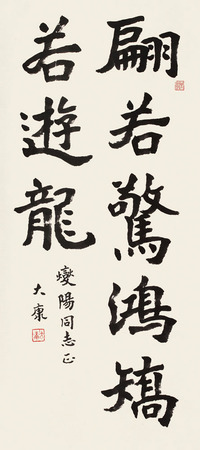 翩若驚鴻矯
若遊龍
爕陽同志正
大康